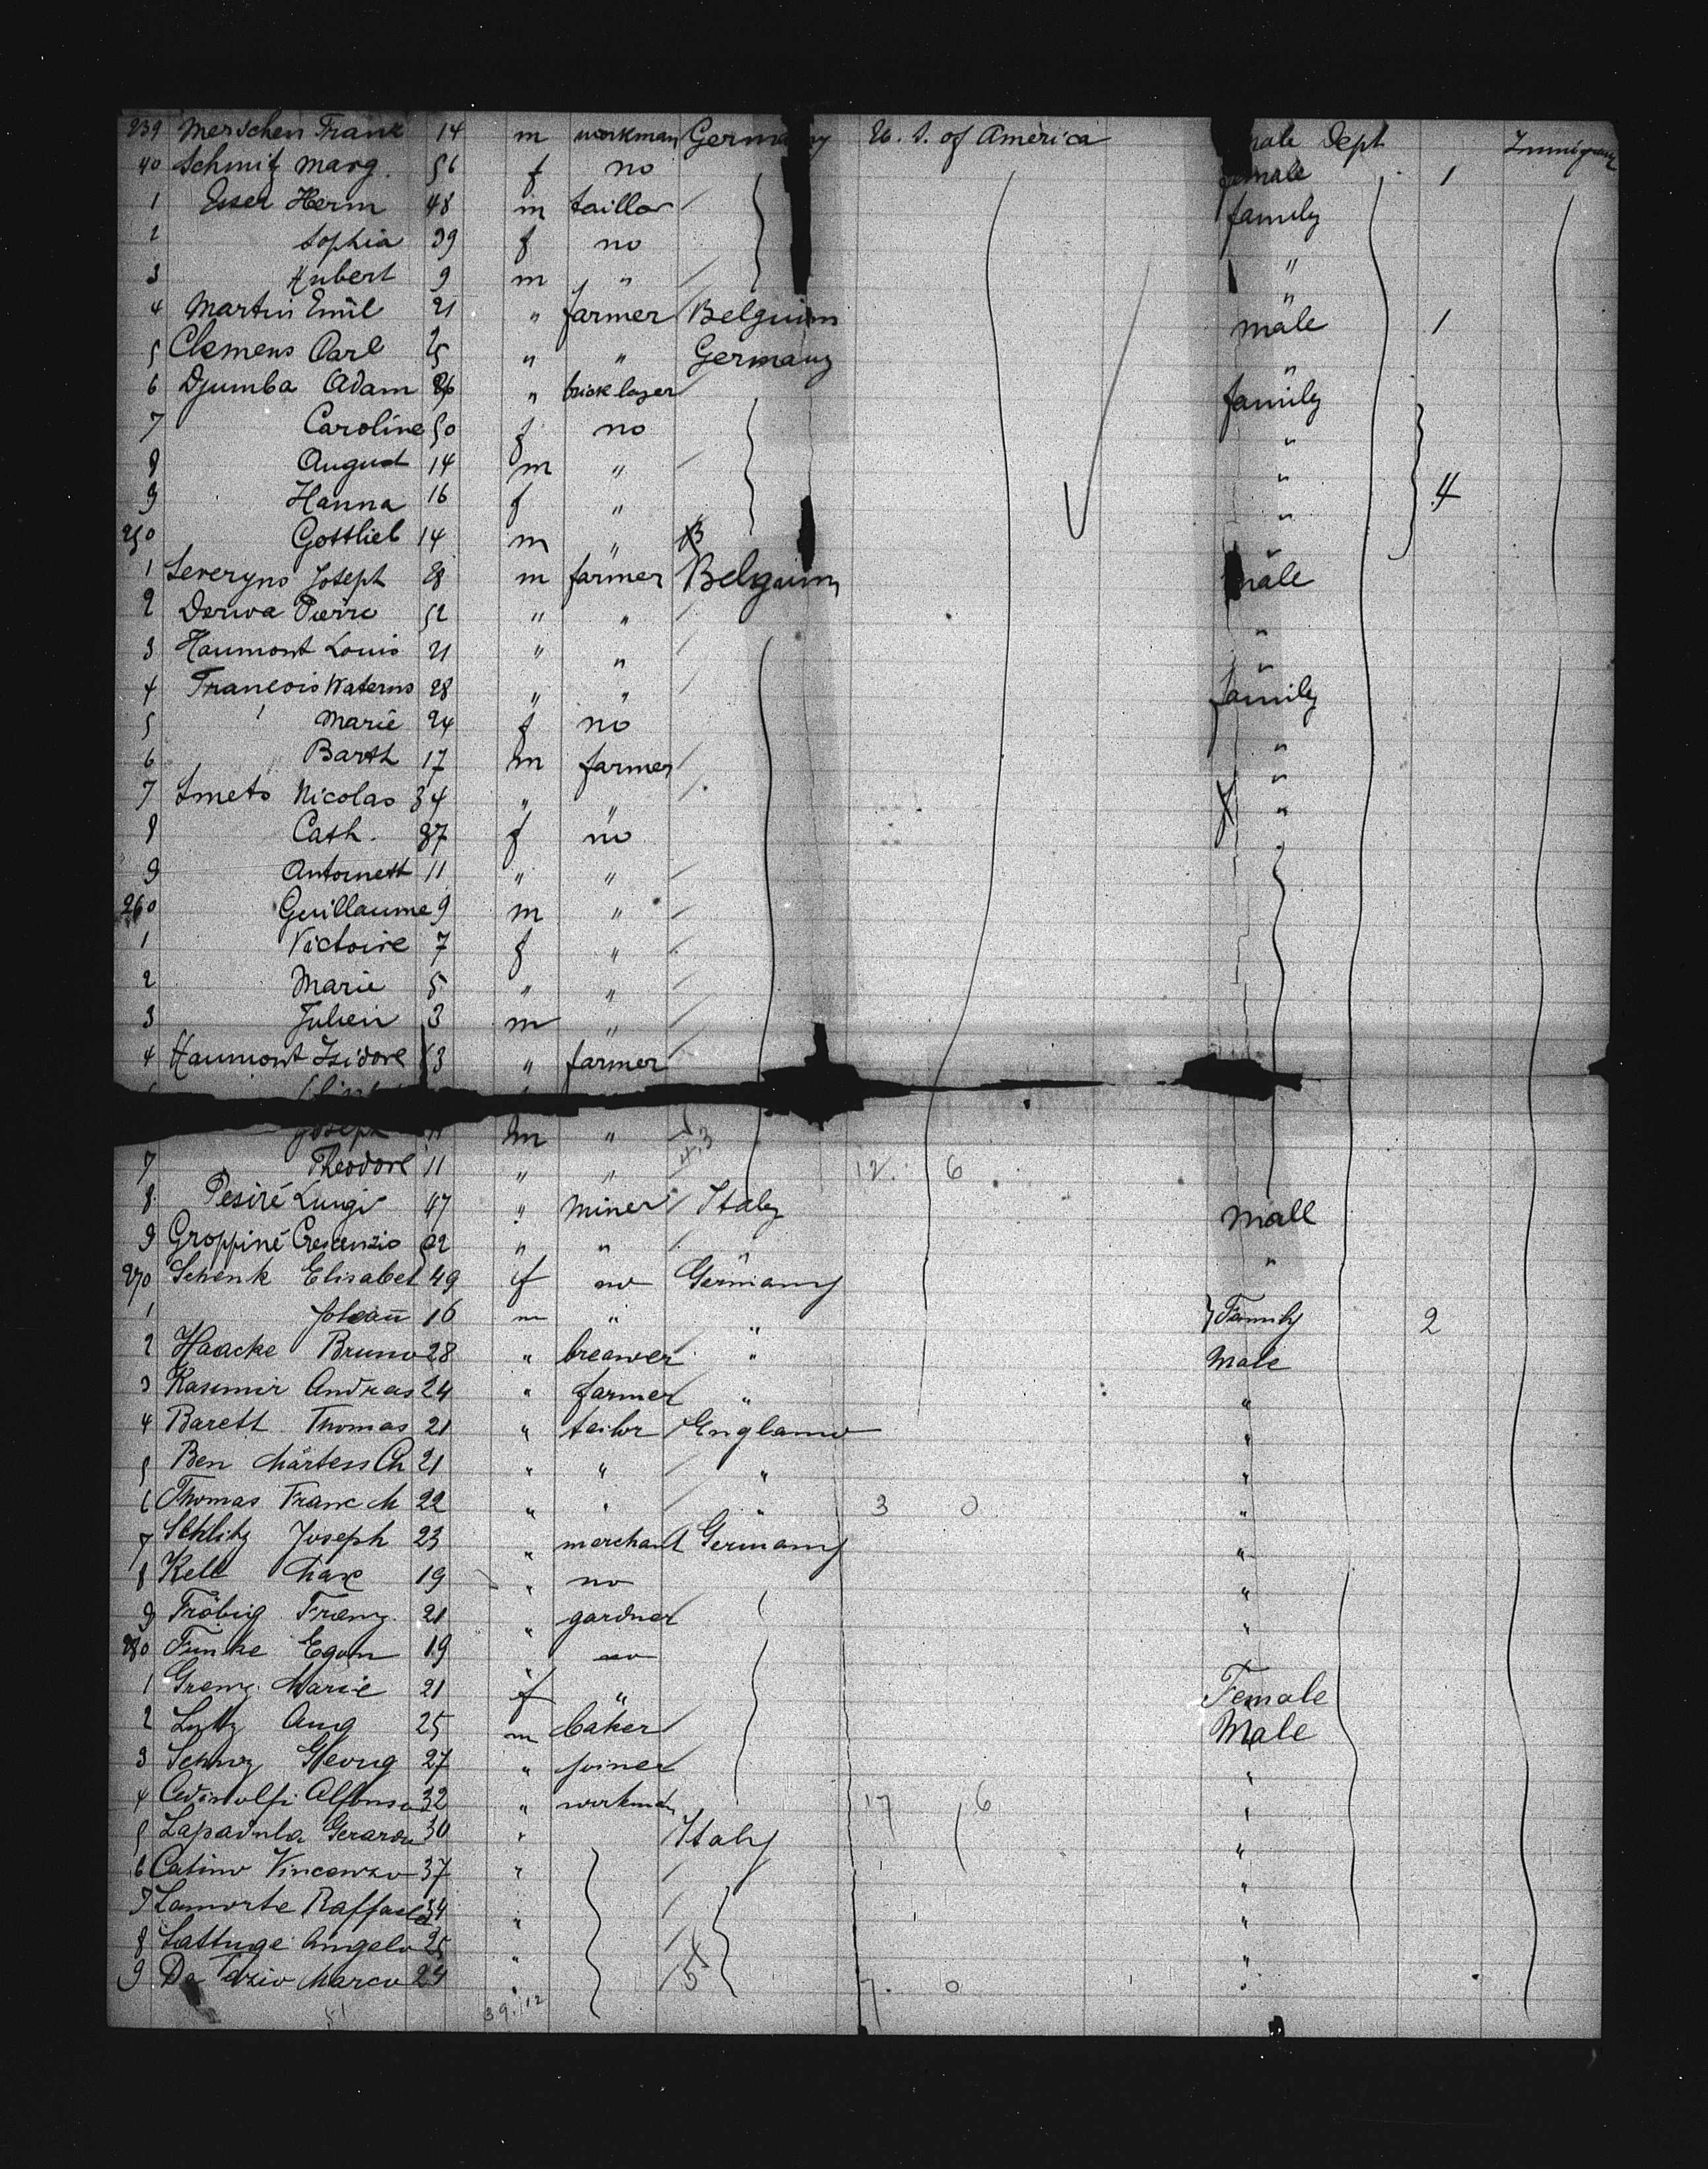 239 Merschen Frank 14 m workman Germany U. S. of America male Dept Immigrant
40 Schmitz Marg. 56 f no female 1
1 Esser Herm 48 m taillor family
2 Sophia 39 f no "
3 Hubert 9 m " "
4 Martin Emil 21 " farmer Belguim male 1
5 Clemens Carl 25 " " Germany "
6 Djumba Adam " bricklayer family
7 Caroline 50 f no "
8 August 14 m " "
9 Hanna 16 f " " 4
250 Gottlieb 14 m " "
1 Severyns Joseph 28 m farmer Belguim male
2 Derwa Pierre 52 " " "
3 Haumont Louis 21 " " "
4 Francois Waterns 28 " " family
5 Marie 24 f no "
6 Barth 17 m farmer "
7 Smets Nicolas 34 " " "
8 Cath. 37 f no "
9 Antoinett 11 " "
260 Guillaume 9 m "
1 Victoire 7 f "
2 Marie 5 " "
3 Julien 3 m "
4 Haumont Isidore " farmer
Joseph m "
7 Theodore 11 " " 12. 6
8 Pesiré Luigi 47 " miner Italy male
9 Groppiné Crescenzio " " "
270 Schenk Elisabet 49 f no Germany
1 Johann 16 m " " Family 2
2 Haacke Bruno 28 " breawer " Male
3 Kasimir Andreas 24 " farmer " "
4 Barett Thomas 21 " tailor England "
5 Ben Märtess Ch 21 " " " "
6 Thomas Franc M 22 " " " 3 0 "
7 Schlitz Joseph 23 " merchant Germany "
8 Kell Max 19 " no "
9 Fröbig Franz. 21 " gardner "
280 Funke Egon 19 " no
1 Grenz Marie 21 f " Female
2 Lutz Aug 25 m baker Male
3 Georg 27 " joiner "
4 Alfonso 32 " workman 17 6 "
5 Lapadula Gerardo 30 " Italy "
6 Catino Vincenzo 37 " "
7 Lamorte Raffaele 34 " "
8 Lattuge Angelo 25 " "
9 De Tezio Marco 24 " 5 7. 0 "
51 39./12